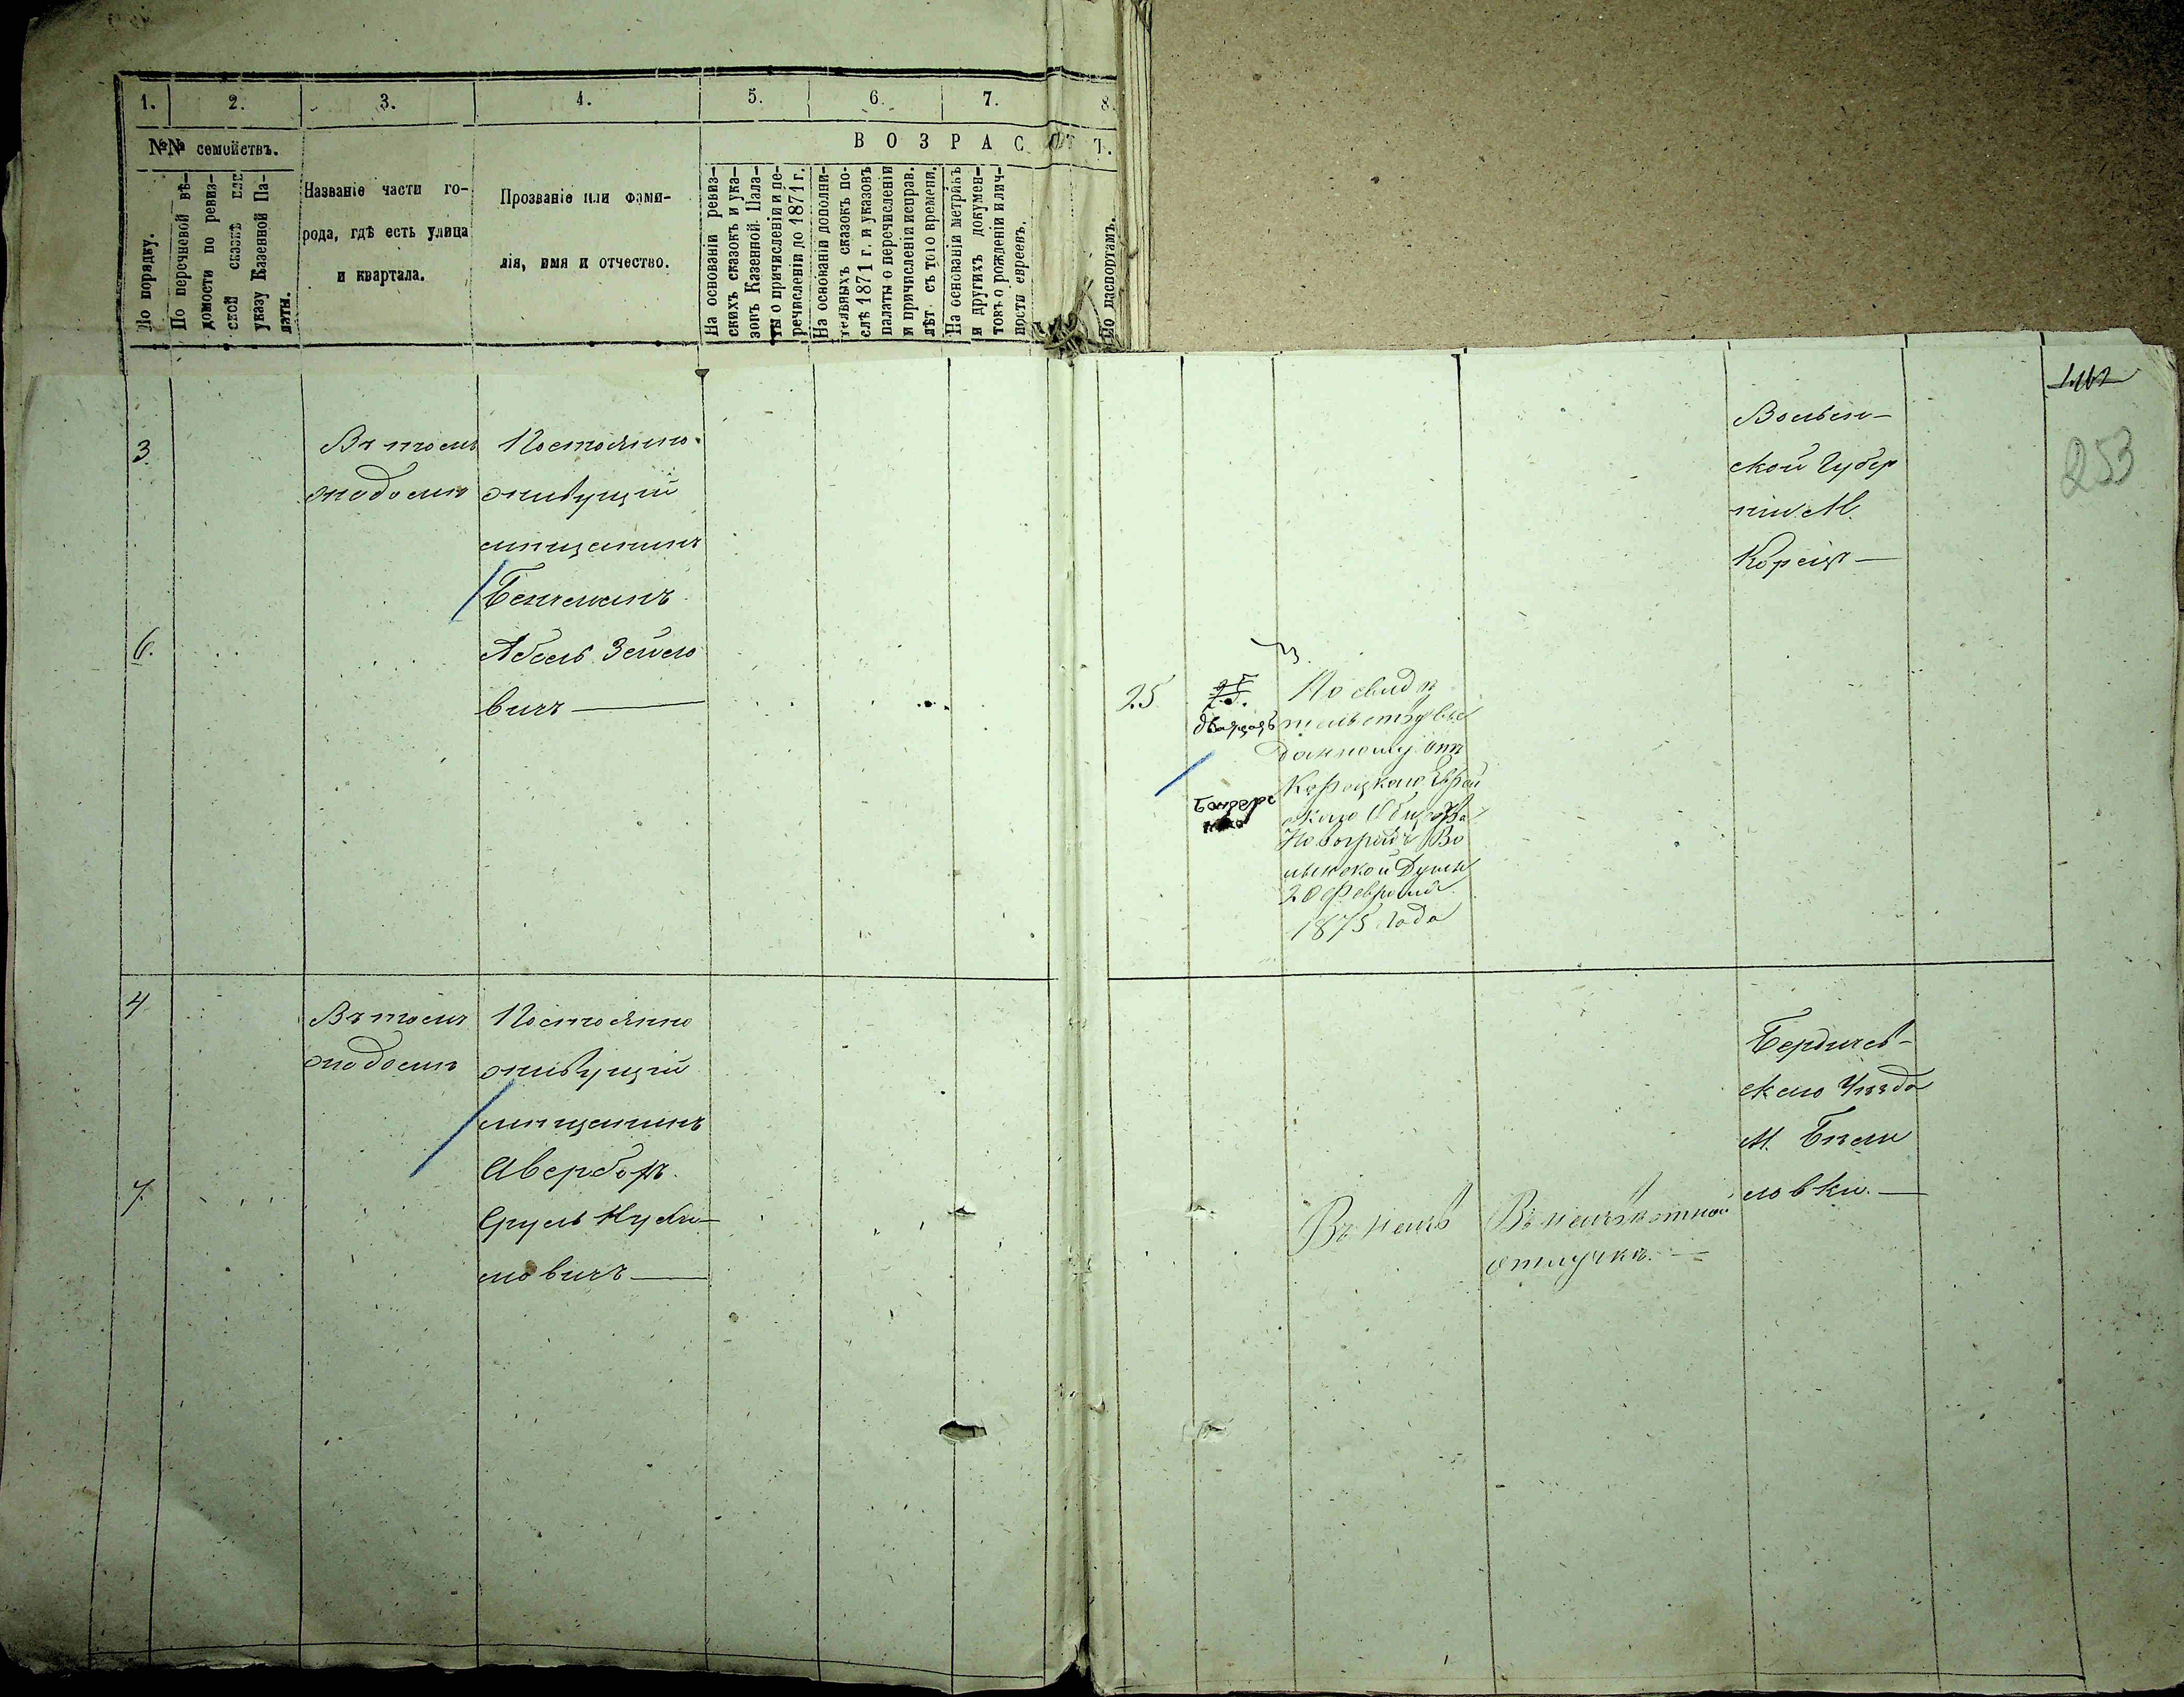 1. 2. 3. 4. 5. 6. 7. 8.
№№ семействъ.
В О З Р А С Т Ъ.
По порядку.
По перечневой вѣ-
домости по ревиз-
ской сказкѣ или
указу Казенной Па-
латы.
Названіе части го-
рода, гдѣ есть улица
и квартала.
Прозваніе или фами-
лія, имя и отчество.
На основаніи ревиз-
скихъ сказокъ и ука-
зовъ Казенной Пала-
ты о причисленіи и пе-
речисленіи до 1871 г.
На основаніи дополни-
тельныхъ сказокъ по-
слѣ 1871 г. и указовъ
палаты о перечисленіи
и причисленіи исправ.
лѣт съ того времени.
На основаніи метрикъ
и другихъ докумен-
товъ о рожденіи и лич-
ности евреевъ.
По паспортамъ.
253
3.
Въ томъ
же домѣ
Постоянно
живущій
мѣщанинъ
Бенчманъ
Абель Зейло
вичъ
6.
25
двадцать
По свидѣ
тельству вы
данному отъ
Корецкаго Еврей
скаго Общества
Новоградъ Во
лынской Думы
20 Февраля
1875 года
Волын-
ской Губер
ніи М.
Корецъ
4
Въ томъ
же домѣ
Постоянно
живущій
мѣщанинъ
Авербохъ
Сруль Нухи-
мовичъ
7.
Въ неизв
Въ неизвѣстной
отлучкѣ.
Бердичев-
скаго Уѣзда
М. Бѣли
ловки.